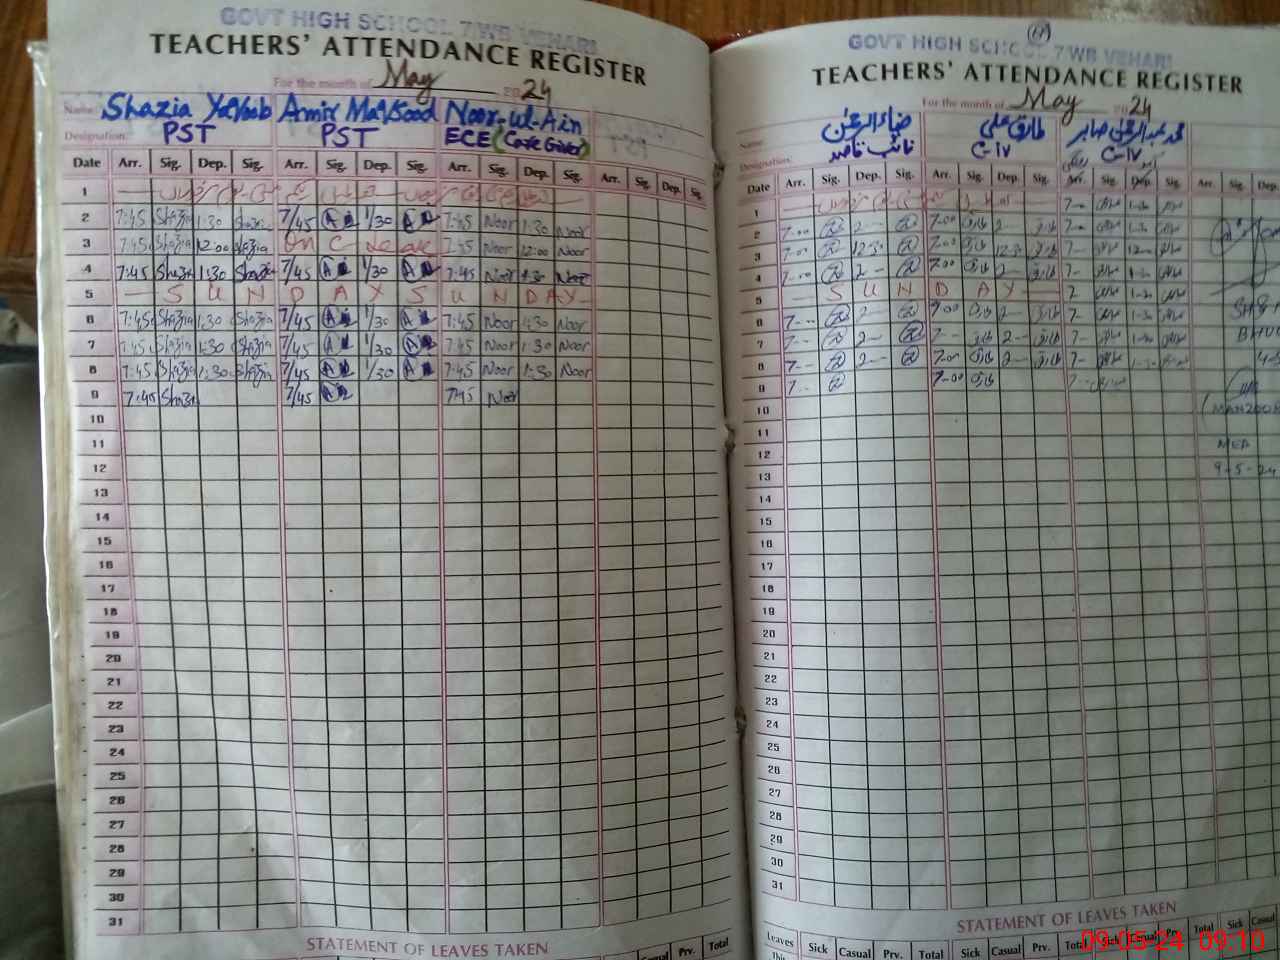 GOVT HIGH SCHOOL 7/WB VEHARI
TEACHERS' ATTENDANCE REGISTER
For the month of May 2024
Name: Shazia Yaqoob Amir Maqsood Noor-ul-Ain
Designation: PST PST ECE (Care Giver)
Date Arr. Sig. Dep. Sig. Arr. Sig. Dep. Sig. Arr. Sig. Dep. Sig. Arr. Sig. Dep. Sig.
1
2 7:45 Shazia 1:30 Shazia 7/45 1/30 7:45 Noor 1:30 Noor
3 7:45 Shazia 12:00 Shazia On C Leave 7:45 Noor 12:00 Noor
4 7:45 Shazia 1:30 Shazia 7/45 1/30 7:45 Noor 1:30 Noor
5 S U N D A Y S U N D A Y
6 7:45 Shazia 1:30 Shazia 7/45 1/30 7:45 Noor 1:30 Noor
7 7:45 Shazia 1:30 Shazia 7/45 1/30 7:45 Noor 1:30 Noor
8 7:45 Shazia 1:30 Shazia 7/45 1/30 7:45 Noor 1:30 Noor
9 7:45 Shazia 7/45 7:45 Noor
10
11
12
13
14
15
16
17
18
19
20
21
22
23
24
25
26
27
28
29
30
31
STATEMENT OF LEAVES TAKEN
Prv. Total
GOVT HIGH SCHOOL 7/WB VEHARI
TEACHERS' ATTENDANCE REGISTER
For the month of May 2024
Name: ضیاء الرحمٰن طارق علی محمد عبدالرحمٰن صابر
Designation: نائب قاصد C-IV C-IV
Date Arr. Sig. Dep. Sig. Arr. Sig. Dep. Sig. Arr. Sig. Dep. Sig. Arr. Sig. Dep.
1
2 7-00 2- 7-00 طارق 2- طارق
3 7-00 12-30 7-00 طارق 12-30 طارق
4 7-00 2- 7-00 طارق 2- طارق
5 S U N D A Y
6 7- 2- 7-00 طارق 2- طارق
7 7- 2- 7-00 طارق 2- طارق
8 7- 2- 7-00 طارق 2- طارق
9 7- 7-00 طارق
10
11
12 MEA
13 9-5-24
14
15
16
17
18
19
20
21
22
23
24
25
26
27
28
29
30
31
STATEMENT OF LEAVES TAKEN
Leaves Sick Casual Prv. Total Sick Casual Prv. Total Sick Casual Prv. Total Sick Casual
09-05-24 09:10